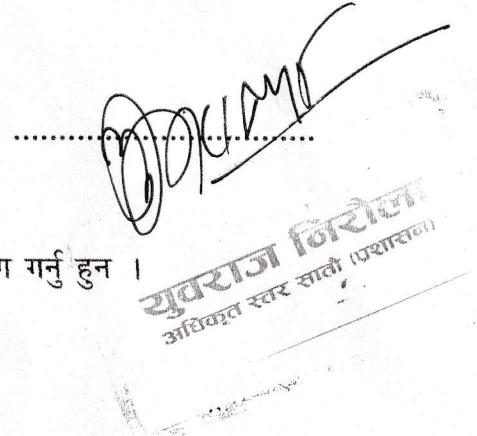 गर्नु हुन ।
युवराज निरौला
अधिकृत स्तर सातौ (प्रशासन)